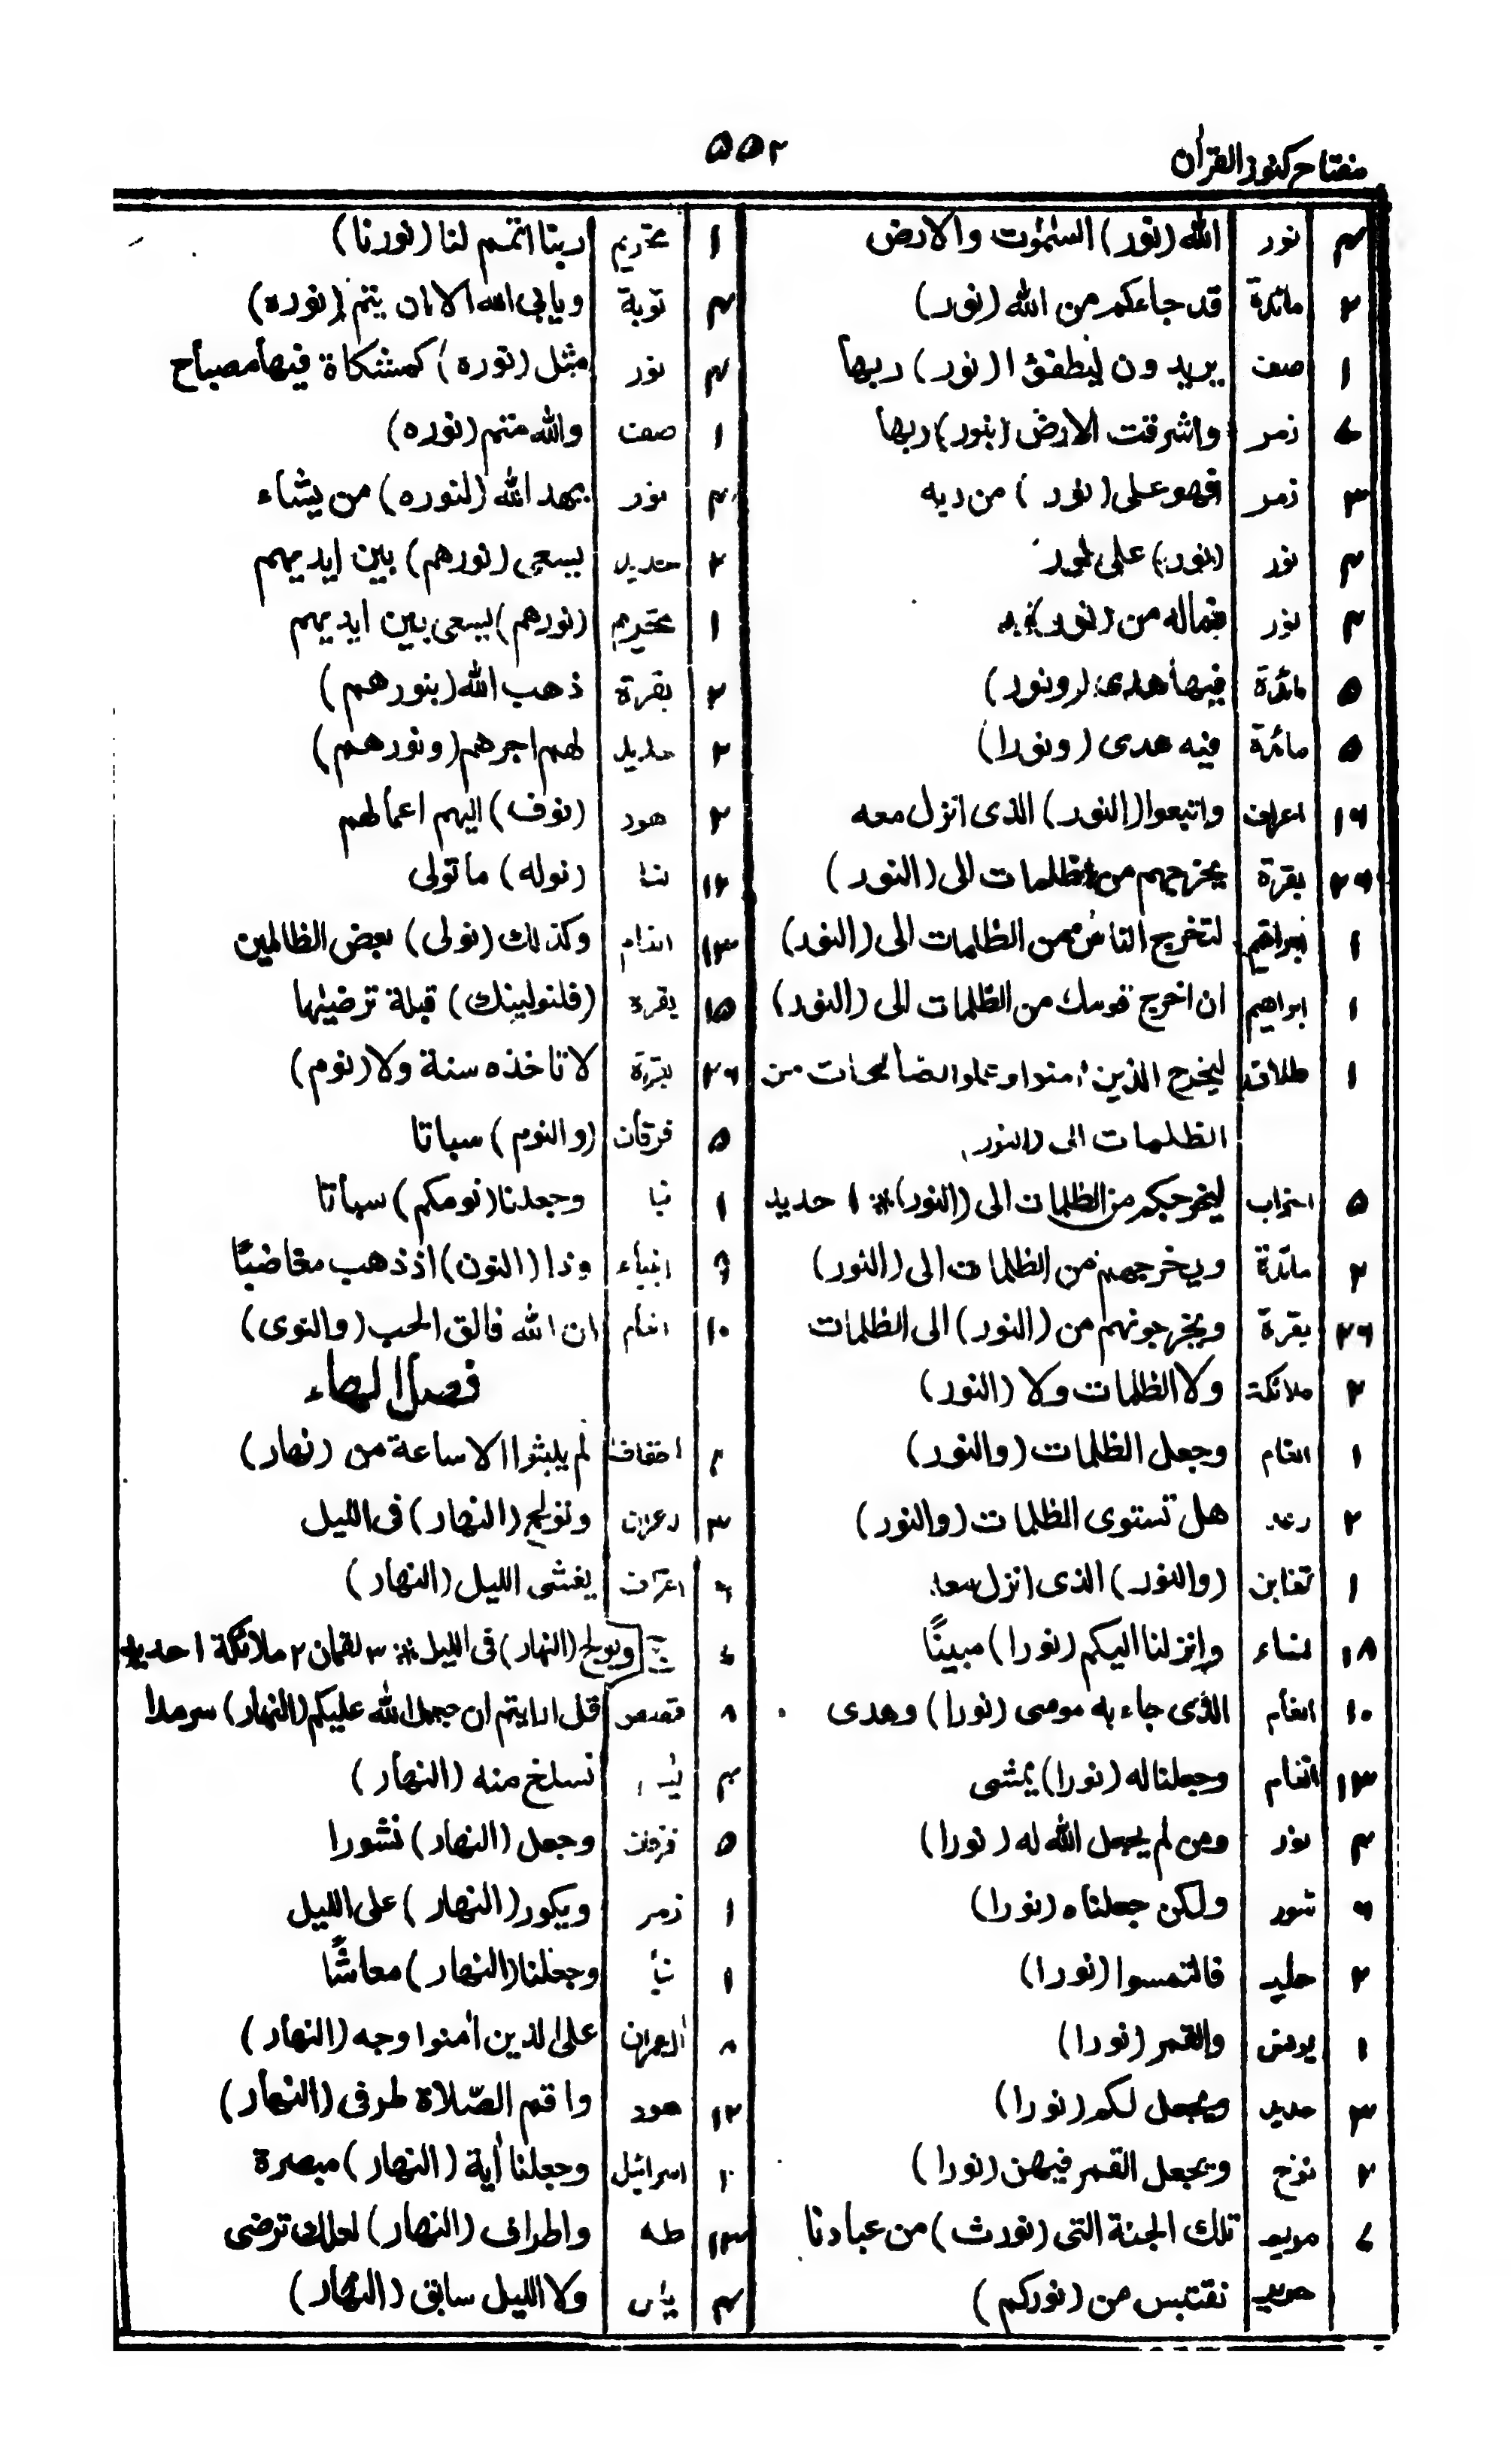 مفتاح كنوز القرآن
۵۵۲
۴ نور الله (نور) السمٰوت والارض
۲ مائدة قد جاءكم من الله (نور)
۱ صف يريدون ليطفؤا (نور) ربها
زمر واشرقت الارض (بنور) ربها
۳ زمر فهو على (نور) من ربه
۴ نور (نور) على نور
۴ نور فماله من (نور)
۵ مائدة فيها هدى (ونور)
۵ مائدة فيه هدى (ونورا)
۱۹ اعراف واتبعوا (النور) الذى انزل معه
بقرة يخرجهم من الظلمات الى (النور)
۱ ابراهيم لتخرج الناس من الظلمات الى (النور)
۱ ابراهيم ان اخرج قومك من الظلمات الى (النور)
۱ طلاق ليخرج الذين امنوا وعملوا الصالحات من
الظلمات الى (النور)
۵ احزاب ليخرجكم من الظلمات الى (النور) * ۱ حديد
۲ مائدة ويخرجهم من الظلمات الى (النور)
بقرة ويخرجونهم من (النور) الى الظلمات
۲ ملائكة ولا الظلمات ولا (النور)
۱ انعام وجعل الظلمات (والنور)
۲ رعد هل تستوى الظلمات (والنور)
۱ تغابن (والنور) الذى انزلنا
۱۸ نساء وانزلنا اليكم (نورا) مبينًا
۱۰ انعام الذى جاء به موسى (نورا) وهدى
۱۳ انعام وجعلنا له (نورا) يمشى
۴ نور ومن لم يجعل الله له (نورا)
شور ولكن جعلناه (نورا)
۲ حديد فالتمسوا (نورا)
۱ يونس والقمر (نورا)
۳ حديد ويجعل لكم (نورا)
۲ نوح ويجعل القمر فيهن (نورا)
مريم تلك الجنة التى (نورث) من عبادنا
حديد نقتبس من (نوركم)
۱ تحريم ربنا اتمم لنا (نورنا)
توبة ويابى الله الا ان يتم (نوره)
۴ نور مثل (نوره) كمشكاة فيها مصباح
۱ صف والله متم (نوره)
۴ نور يهد الله (لنوره) من يشاء
۲ حديد يسعى (نورهم) بين ايديهم
۱ تحريم (نورهم) يسعى بين ايديهم
۲ بقرة ذهب الله (بنورهم)
۲ حديد لهم اجرهم (ونورهم)
۲ هود (نوف) اليهم اعمالهم
نسا (نوله) ما تولى
انعام وكذلك (نولى) بعض الظالمين
۱۵ بقرة (فلنولينك) قبلة ترضيٰها
بقرة لا تاخذه سنة ولا (نوم)
۵ فرقان (والنوم) سباتا
۱ نبا وجعلنا (نومكم) سباتا
انبياء وذا (النون) اذ ذهب مغاضبًا
۱۰ انعام ان الله فالق الحب (والنوى)
فصل الهاء
احقاف لم يلبثوا الا ساعة من (نهار)
۳ وتولج (النهار) فى الليل
اعراف يغشى الليل (النهار)
ويولج (النهار) فى الليل * ۳ لقمان ۲ ملائكة ۱ حديد
قصص قل ارايتم ان جعل الله عليكم (النهار) سرمدا
يٰس نسلخ منه (النهار)
۵ فرقان وجعل (النهار) نشورا
۱ زمر ويكور (النهار) على الليل
۱ نبأ وجعلنا (النهار) معاشًا
۸ ال عمران على الذين اٰمنوا وجه (النهار)
هود واقم الصّلاة طرفى (النهار)
اسرائيل وجعلنا اٰية (النهار) مبصرة
طه واطراف (النهار) لعلك ترضى
يٰس ولا الليل سابق (النهار)